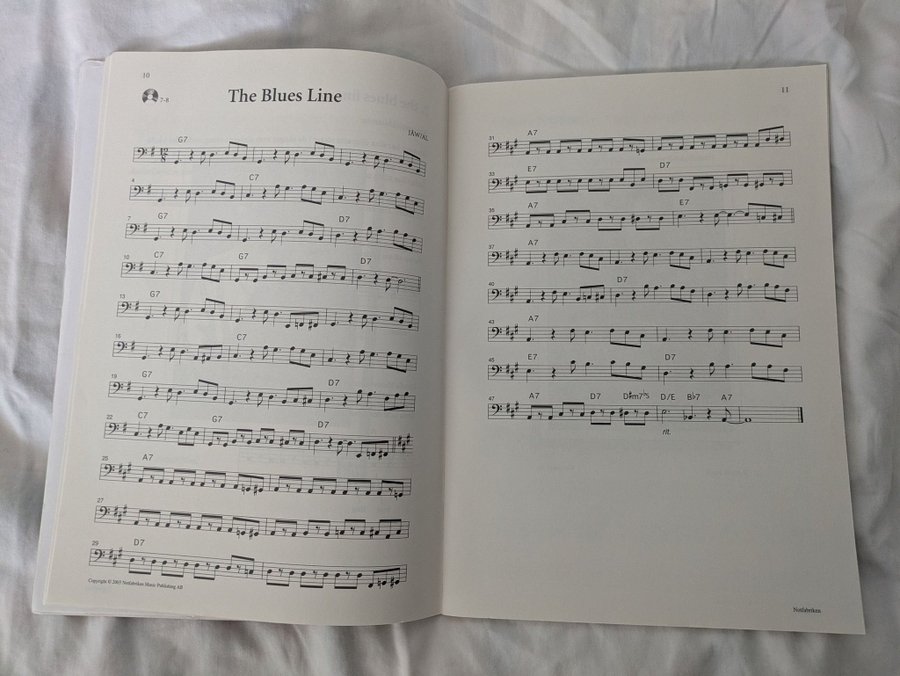 10
7-8
The Blues Line
JÄWI/KL
G7
4
C7
7
G7 D7
10
C7 G7 D7
13
G7
16
C7
19
G7 D7
22
C7 G7 D7
25
A7
27
29
D7
Copyright © 2005 Notfabriken Music Publishing AB
11
31
A7
33
E7 D7
35
A7 E7
37
A7
40
D7
43
A7
45
E7 D7
47
A7 D7 D#m7♭5 D/E B♭7 A7
rit.
Notfabriken